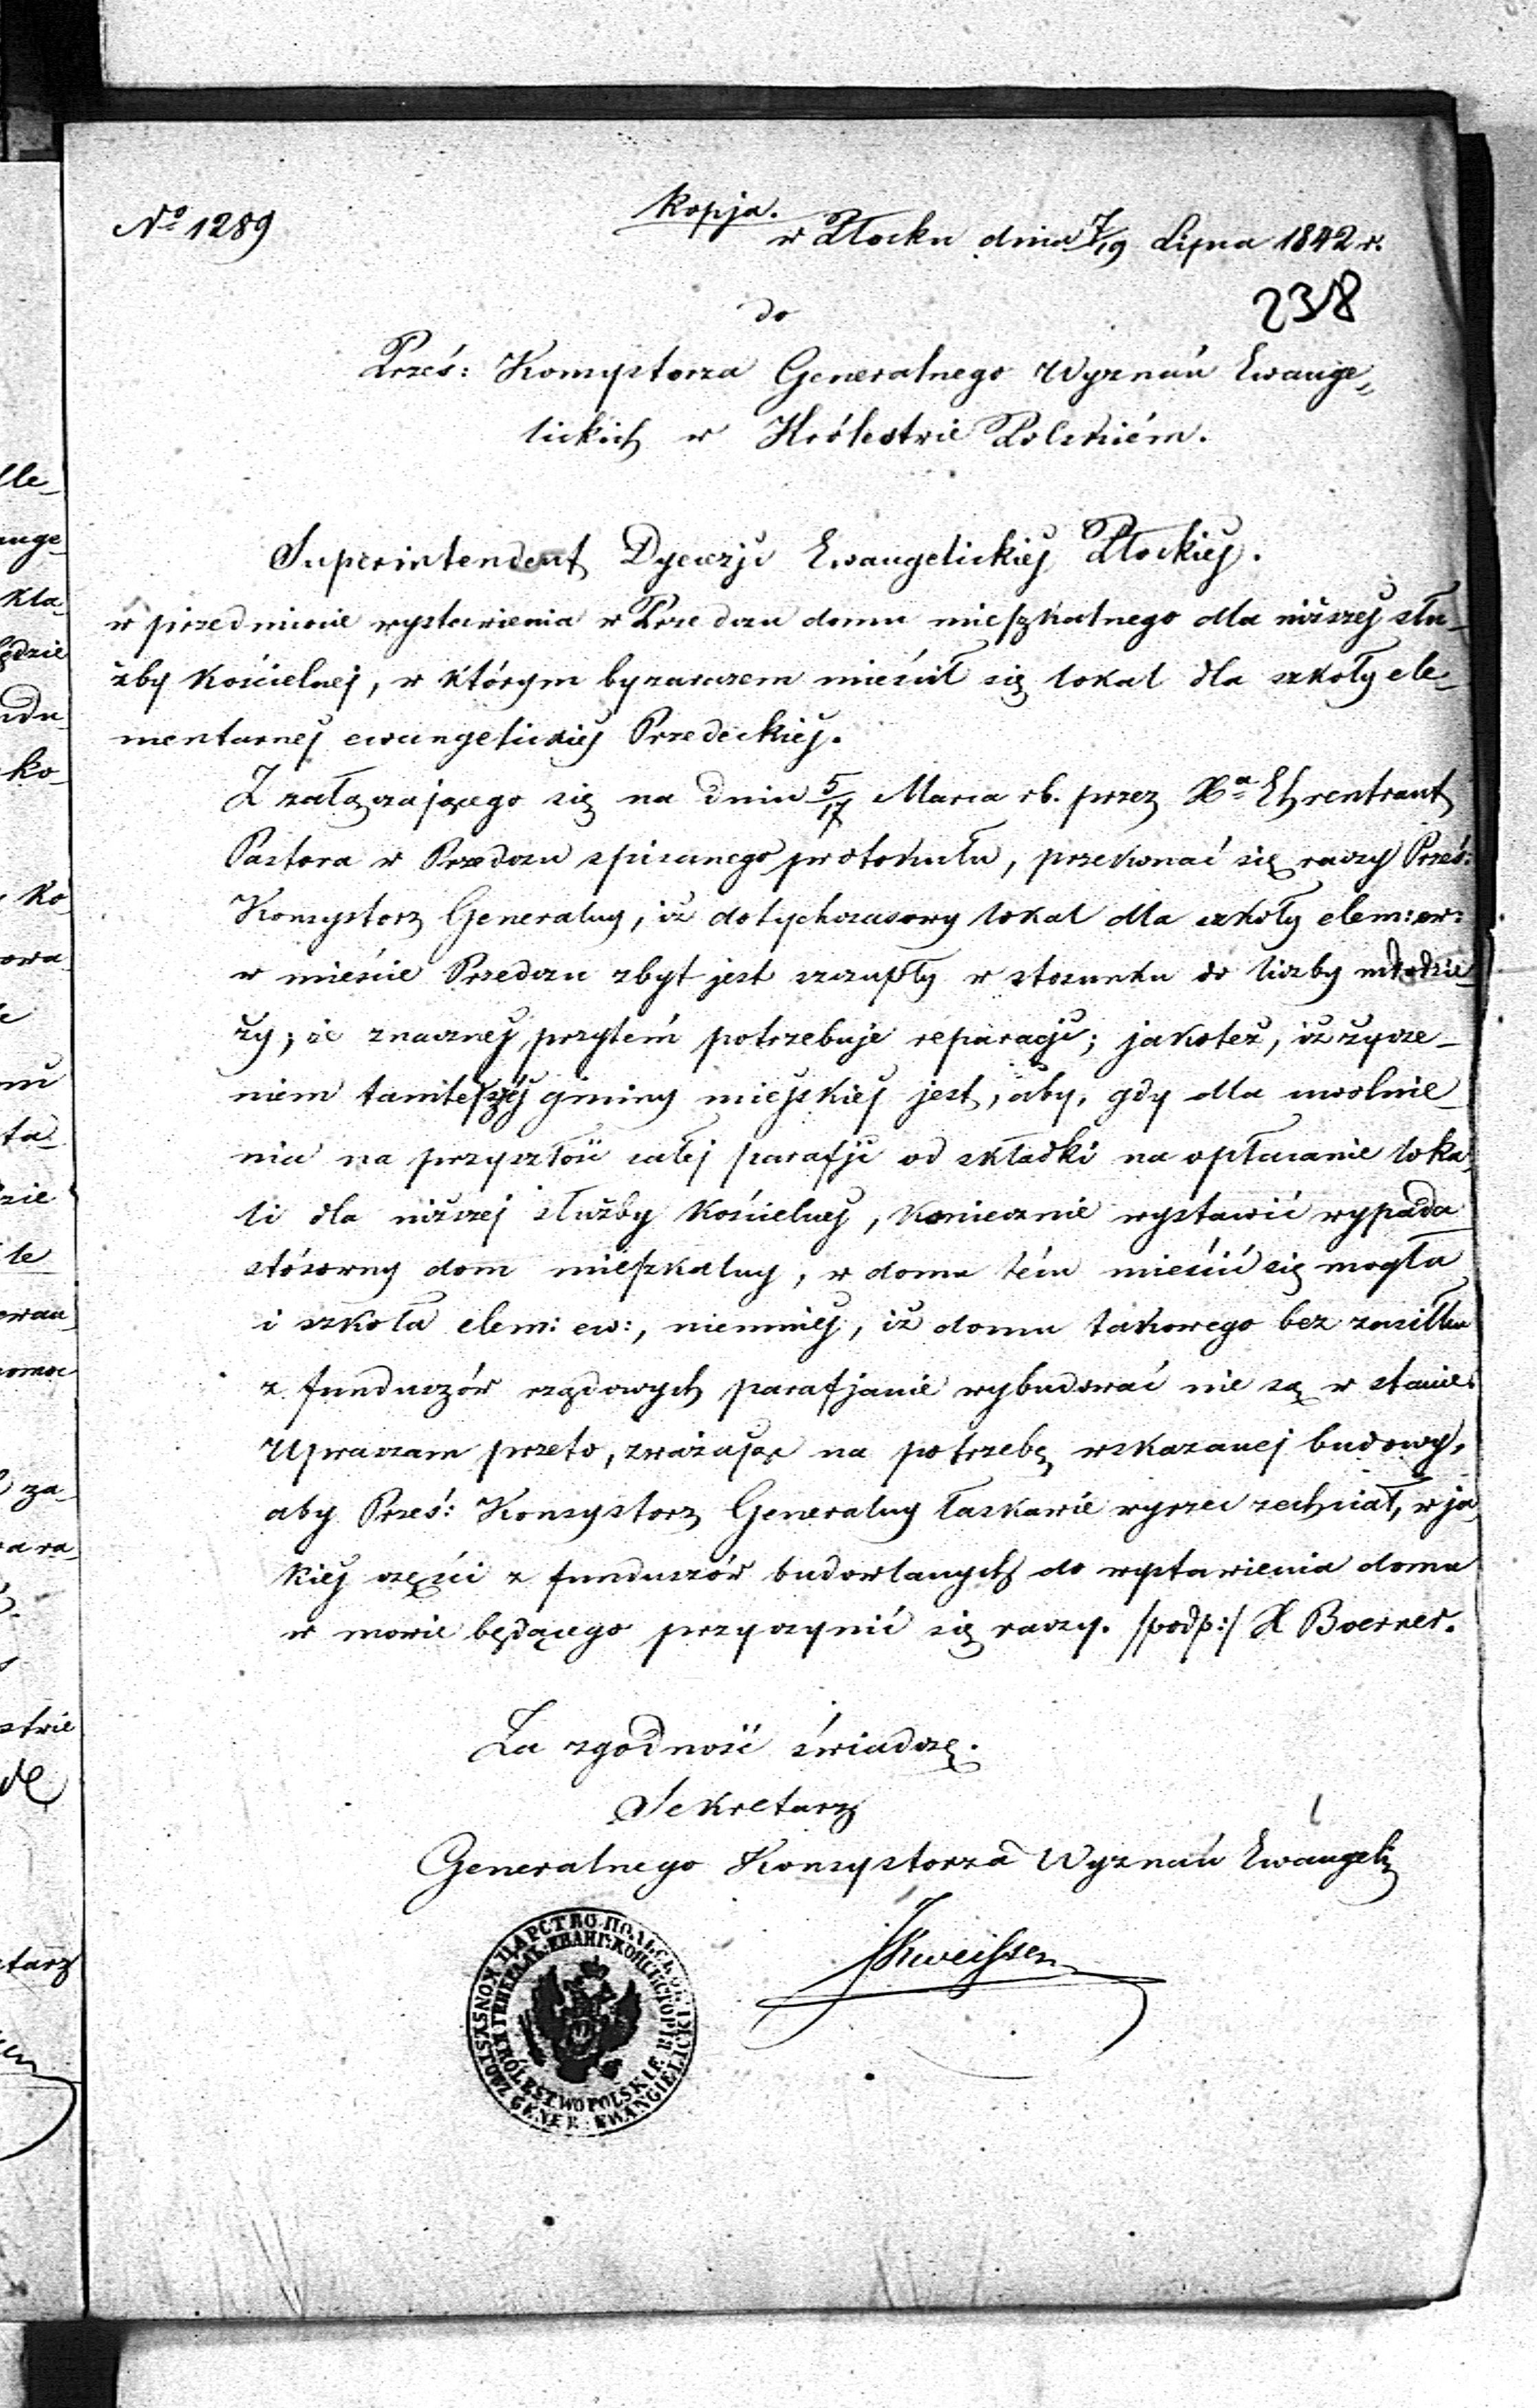 kopja.
No 1289
w Płocku dnia 7/19 Lipca 1842 r.
238
do
Prześ: Konsystorza Generalnego Wyznań Ewange„
lickich w Królestwie Polskiém.
Superintendent Dyecezji Ewangelickiej Płockiej.
w przedmiocie wystawienia w Przedczu domu mieszkalnego dla niższej słu_
żby kościelnej, w którym by zarazem mieścił się lokal dla szkoły ele_
mentarnej ewangelickiej Przedeckiej.
Z załączającego się na dniu 5/17 Marca rb. przez Xa Ehrentraut
Pastora w Przedczu spisanego protokułu, przekonać się raczy Prześ:
Konsystorz Generalny, iż dotychczasowy lokal dla szkoły elem: ew:
w mieście Przedczu zbyt jest szczupły w stosunku do liczby młodzie_
ży; że znacznej przytém potrzebuje reparacji; jakoteż, iż życze_
niem tamtejszéj gminy miejskiej jest, aby, gdy dla uwolnie_
nia na przyszłość całej parafji od składki na opłacanie loka_
li dla niższej służby kościelnej, koniecznie wystawić wypada
stósowny dom mieszkalny, w domu tém mieścić się mogła
i szkoła elem: ew:, niemniej, iż domu takowego bez zasiłku
z funduszów rządowych parafjanie wybudować nie są w stanie.
Upraszam przeto, zważając na potrzebę wskazanej budowy,
aby Prześ: Konsystorz Generalny łaskawie wyrzec zechciał, w ja_
kiej części z funduszów budowlanych do wystawienia domu
w mowie będącego przyczynić się raczy. /podp:/ X Boerner.
Za zgodność świadczę.
Sekretarz
Generalnego Konsystorza Wyznań Ewangeli
JKweissen
ЦАРСТВО ПОЛЬСКОЕ
ГЕНЕРАЛ. ЕВАНГ. КОНСИСТОРІЯ
KRÓLESTWO POLSKIE
KONSYSTORZ GENER. EWANGIELICKI